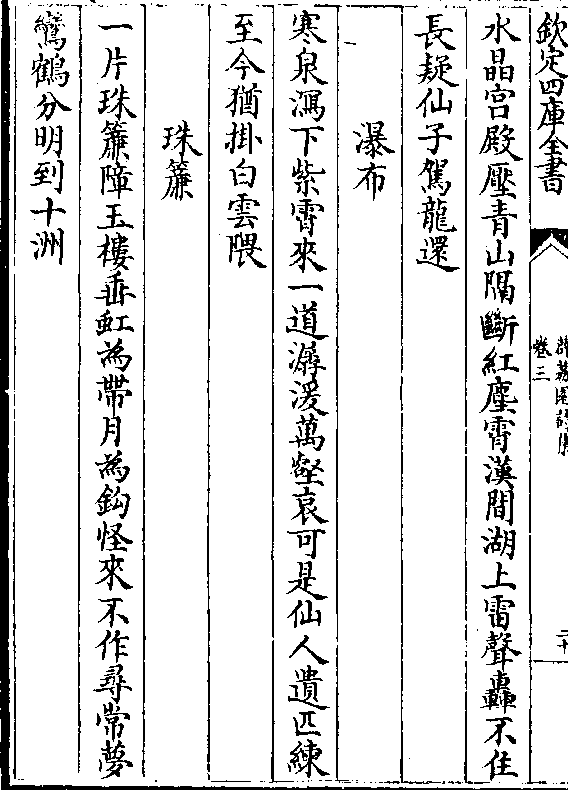 欽定四庫全書
薜荔園詩集
卷三
二十
水晶宮殿壓青山隔斷紅塵霄漢間湖上雷聲轟不住
長疑仙子駕龍還
瀑布
寒泉瀉下紫霄來一道潺湲萬壑哀可是仙人遺匹練
至今猶掛白雲隈
珠簾
一片珠簾障玉樓垂虹為帶月為鈎怪來不作尋常夢
鸞鶴分明到十洲